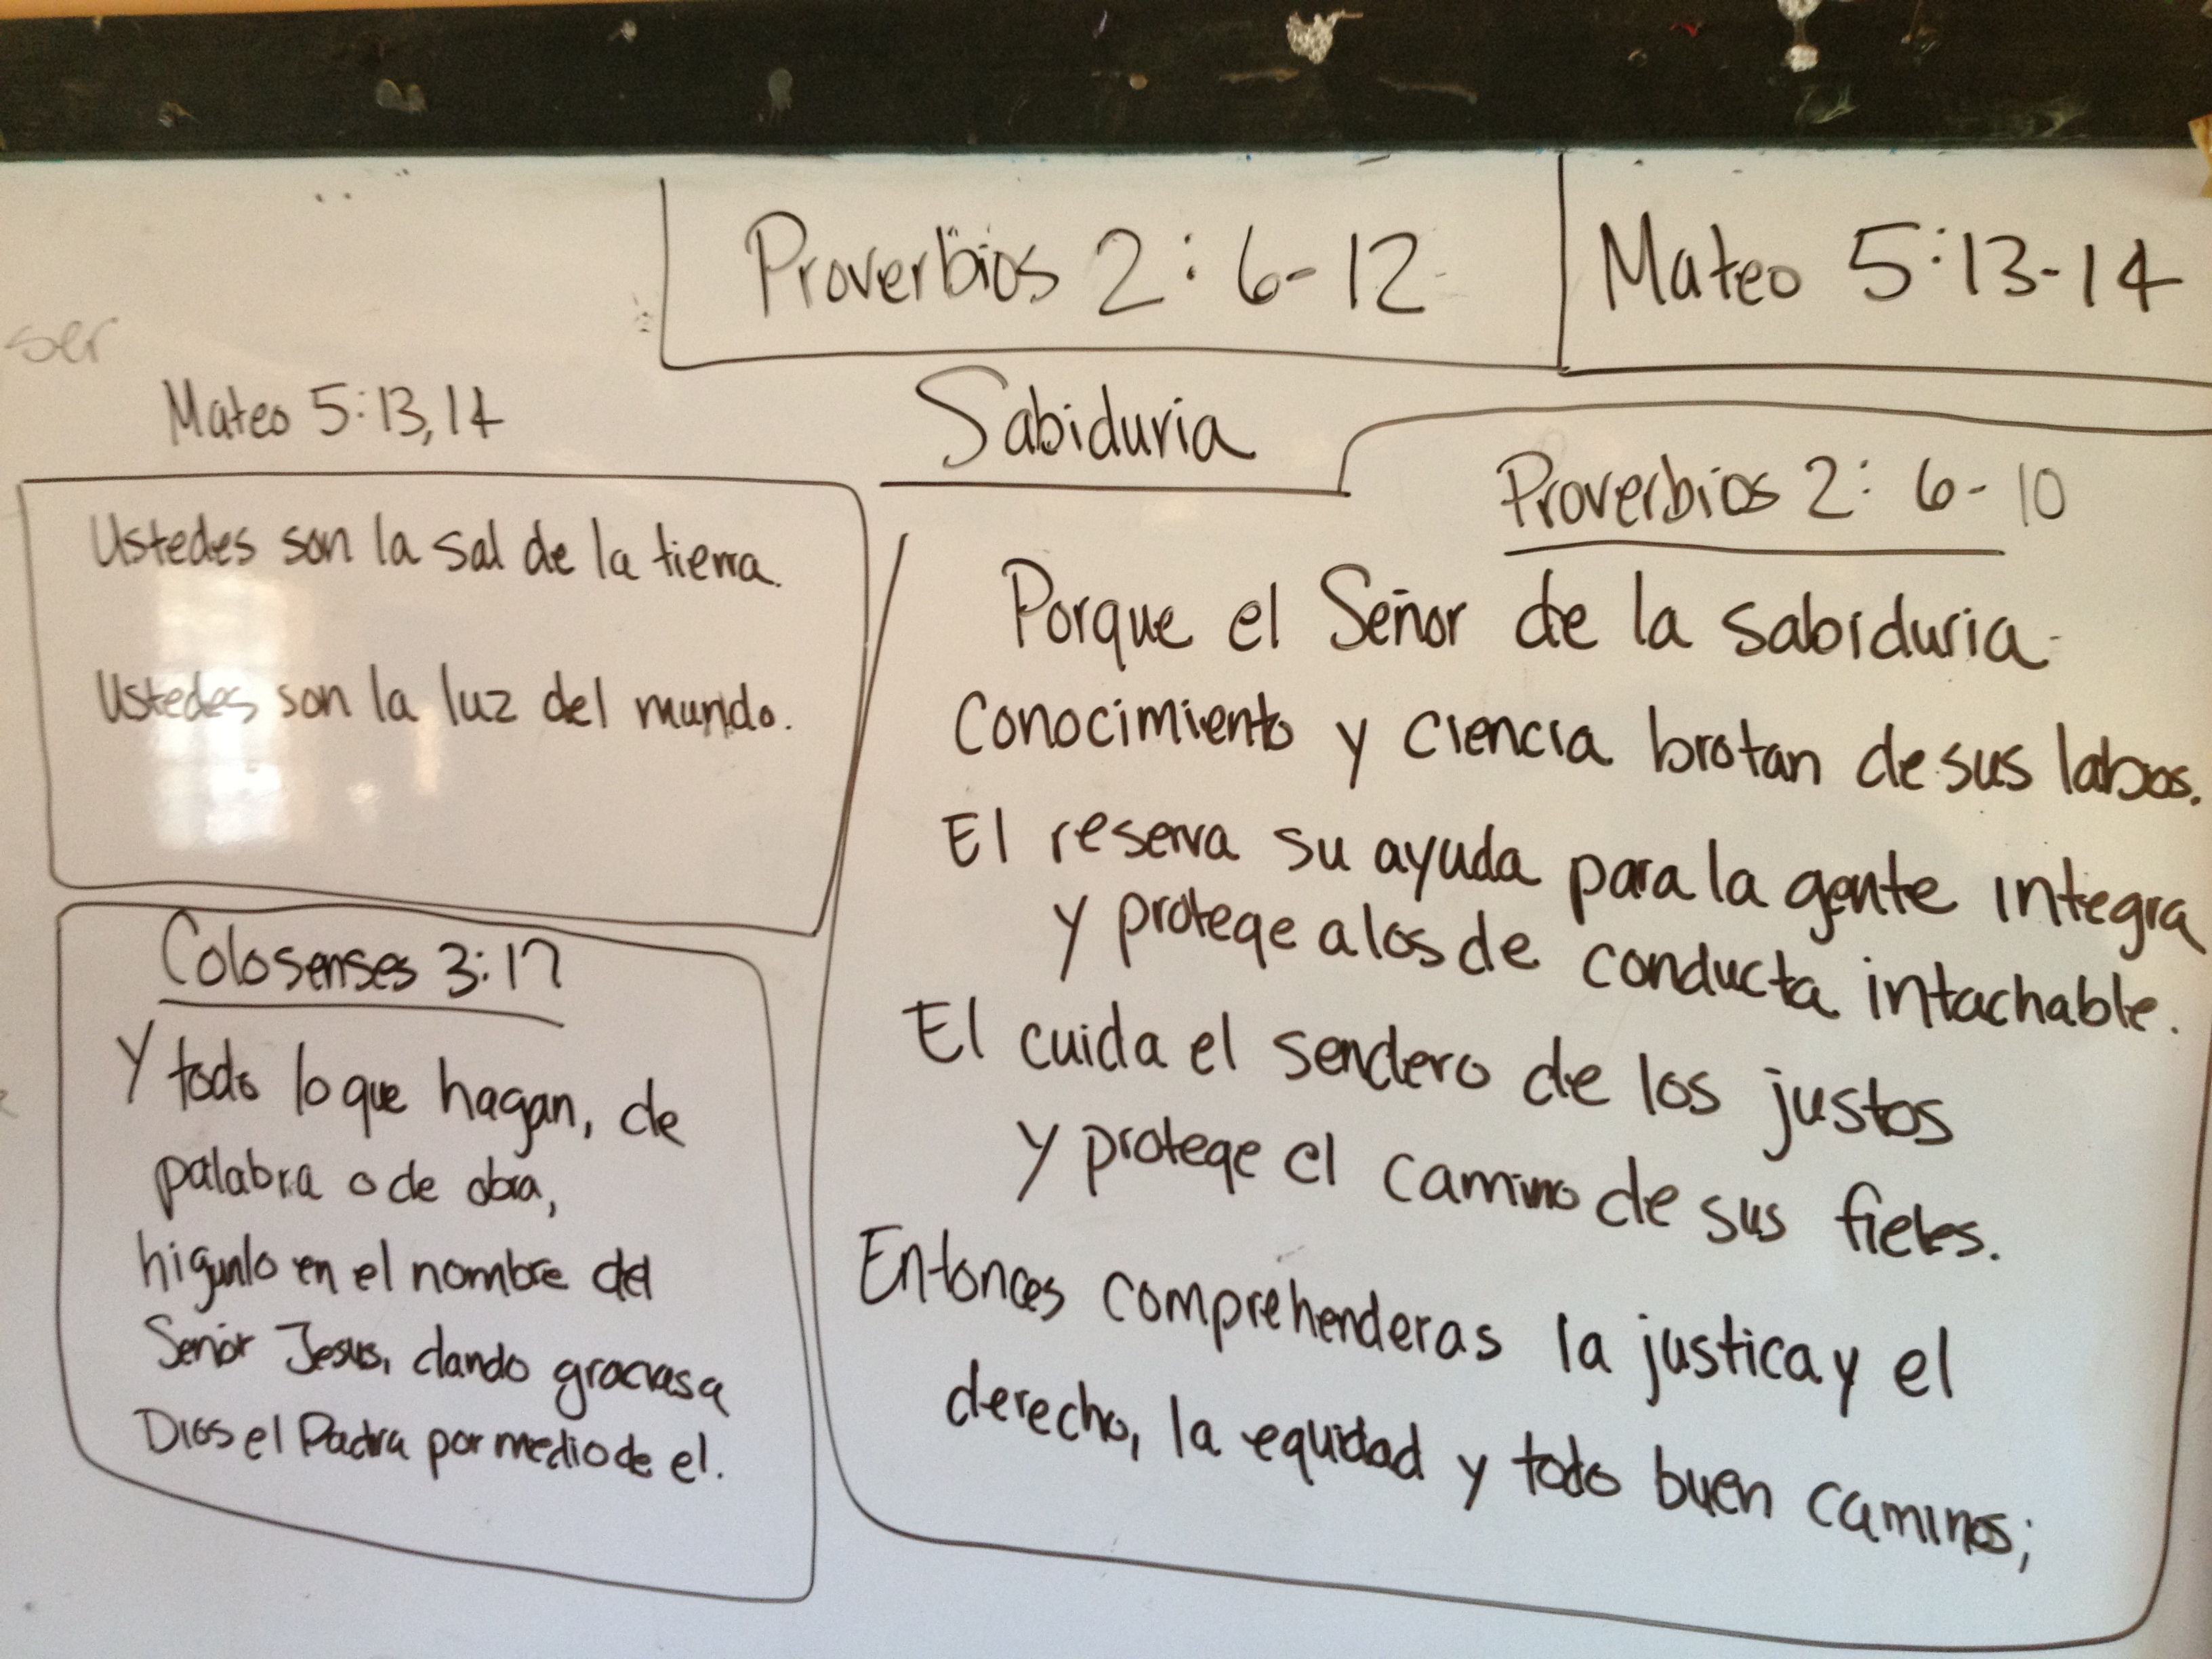 Proverbios 2: 6-12
Mateo 5:13-14
ser
Mateo 5:13,14
Sabiduria
Ustedes son la sal de la tierra.
Ustedes son la luz del mundo.
Colosenses 3:17
Y todo lo que hagan, de
palabra o de obra,
higunlo en el nombre del
Señor Jesus, dando gracias a
Dios el Padra por medio de el.
Proverbios 2: 6-10
Porque el Señor de la sabiduria.
Conocimiento y ciencia brotan de sus labios.
El reserva su ayuda para la gente integra
y protege a los de conducta intachable.
El cuida el sendero de los justos
y protege el camino de sus fieles.
Entonces comprehenderas la justica y el
derecho, la equidad y todo buen caminos;